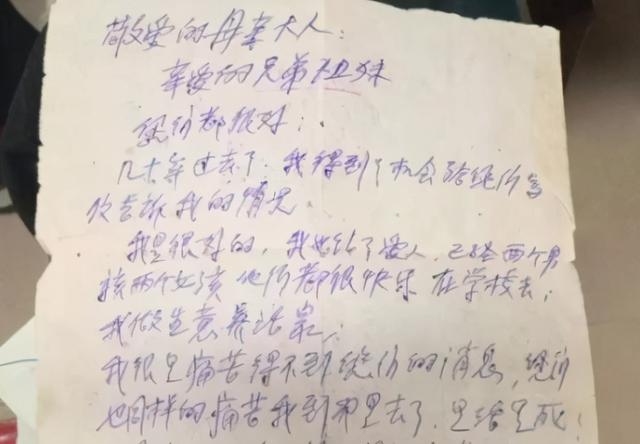 敬爱的母亲大人:
亲爱的兄弟姐妹
您们都很好;
几十年过去了,我得到了机会给您们写
信告诉我的情况
我是很好的,我也结了爱人,已经两个男
孩两个女孩 他们都很快乐 在学校去;
我做生意养活家;
我很是痛苦得不到您们的消息,您们
也同样的痛苦我到那里去了,是活是死;